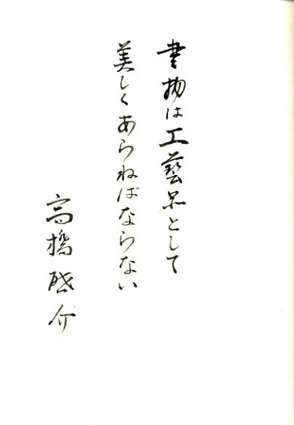 書物は工藝品として
美しくあらねばならない
高橋啓介